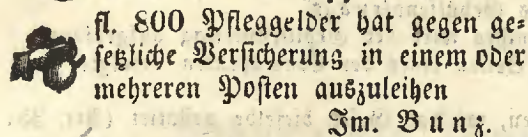 fl. 800 Pfleggelder hat gegen ge⸗
ſetzliche Verſicherung in einem oder
mehreren Poſten auszuleihen
Im. Bunz.